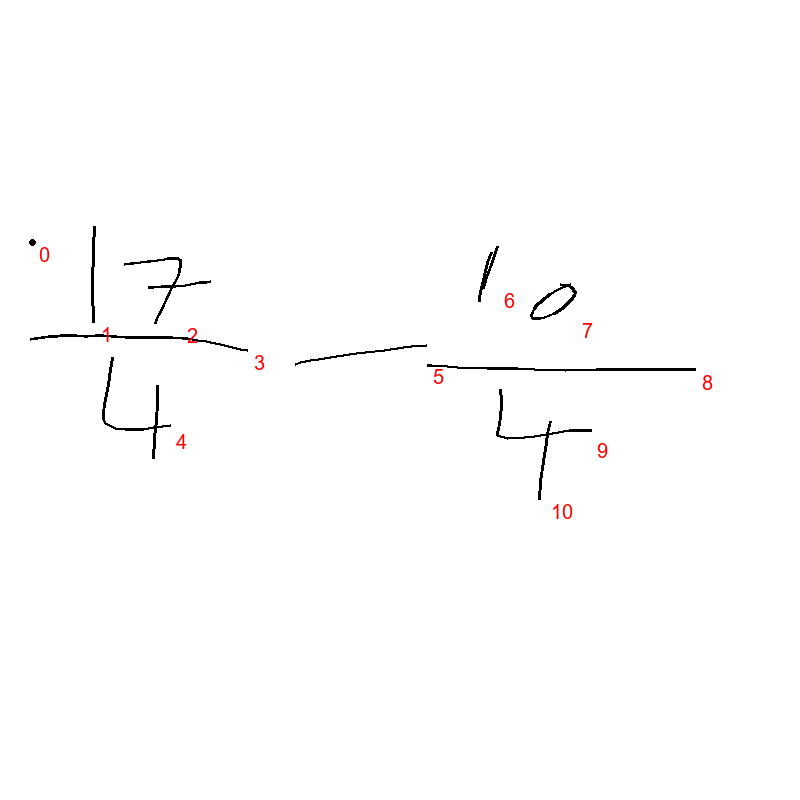 17/4 - 10/4
0
1
2
3
4
5
6
7
8
9
10